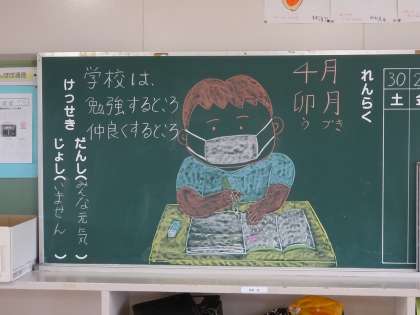 学校は、
勉強するところ
仲良くするところ
4月
卯月
うづき
れんらく
30
土
けっせき
だんし(みんな元気)
じょし(いません)